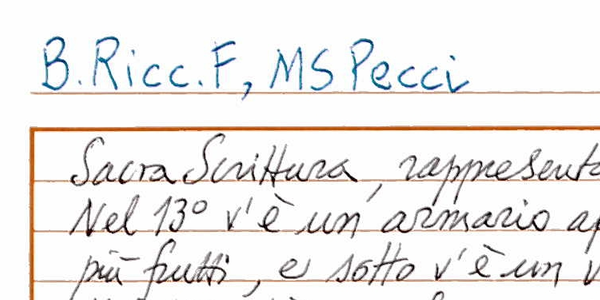 B.Ricc.F, MS Pecci
Sacra Scrittura, rappresenta
Nel 13° v'è un armario ap
più frutti, e sotto v'è un v